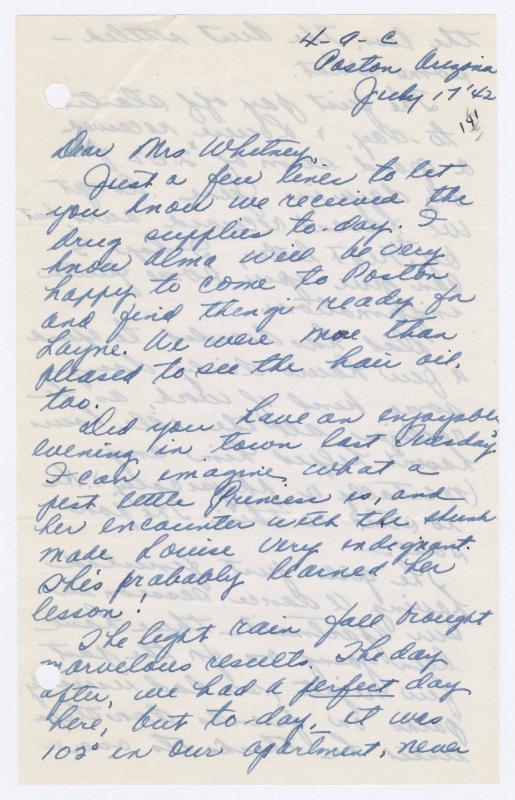 4-A-C
Poston Arizona
July 17 '42
Dear Mrs Whitney,
Just a few lines to let
you know we received the
drug supplies to-day. I
know Alma will be very
happy to come to Poston
and find things ready for
Layne. We were more than
pleased to see the hair oil,
too.
Did you have an enjoyable
evening in town last Tuesday?
I can imagine what a
pest little Princess is, and
her encounter with the skunk
made Louise very indignant.
She's probably learned her
lesson!
The light rain fall brought
marvelous results. The day
after, we had a perfect day
here, but to-day, it was
102° in our apartment, never